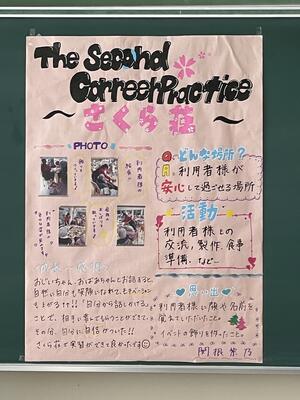 The Second
Carreer Practice
～さくら荘～
PHOTO
どんな場所？
利用者様が
安心して過ごせる場所
活動
利用者様との
交流，製作，食事
準備，など…
おじいちゃん、おばあちゃんとお話すると、
自然に自分も笑顔になれて、モチベーション
も上がる!! 自分から話しかける。
ことで、相手に喜んでもらうことができて、
その分、自分に自信がついた!!
さくら荘で実習ができて良かったです☺
思い出
利用者様に顔や名前を
覚えていただいたこと。
イベントの飾りを作ったこと。